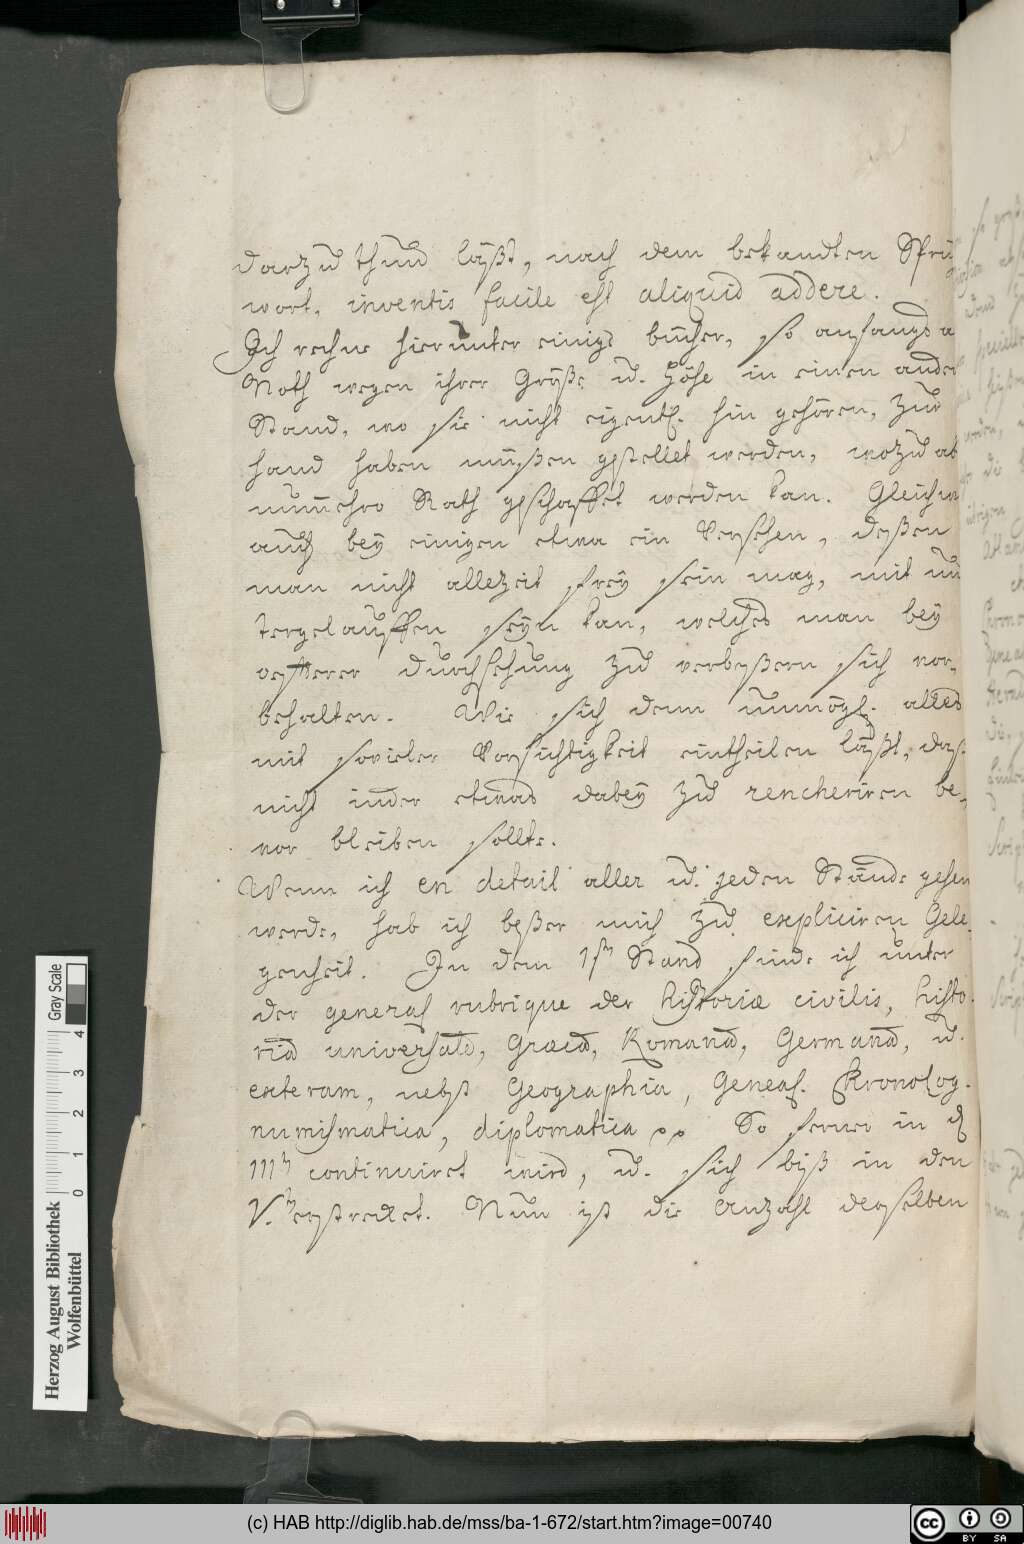 darzu thun läßt, nach dem bekandten Sprü
wort, inventis facile est aliquid addere.
Ich rechne hierunter einige bücher, so anfangs a
Noth wegen ihrer Größe u. Höhe in einen ander
Stand, wo sie nicht eigentl. hin gehören, zur
hand haben müßen gestellet werden, wozu ab
nunmehro Rath geschaffet werden kan. Gleichw
auch bey einigen etwa ein Versehen, deßen
man nicht allezeit frey sein mag, mit un
tergelauffen seyn kan, welches man bey
oefterer durchsehung zu verbeßern sich vor-
behalten. Wie sich denn unmögl. alles
mit sovieler Vorsichtigkeit eintheilen läßt, daß
nicht in der etwas dabey zu rencheriren be-
vor bleiben sollte.
Wenn ich en detail aller u. jeden Stände gehen
werde, hab ich beßer mich zu expliciren Gele-
genheit. In dem 1st Stand finde ich unter
der general rubrique der historiæ civilis, histo-
riã universale, Græcã, Romanã, Germanã, u.
exteram, nebst Geographia, Geneal. Kronolog.
numismatica, diplomatica
So ferner in d
III continuiret wird, u. sich biß in den
V. erstrecket. Nun ist die Anzahl derselben
Herzog August Bibliothek
Wolfenbüttel
Gray Scale
0 1 2 3 4
(c) HAB http://diglib.hab.de/mss/ba-1-672/start.htm?image=00740
cc BY SA